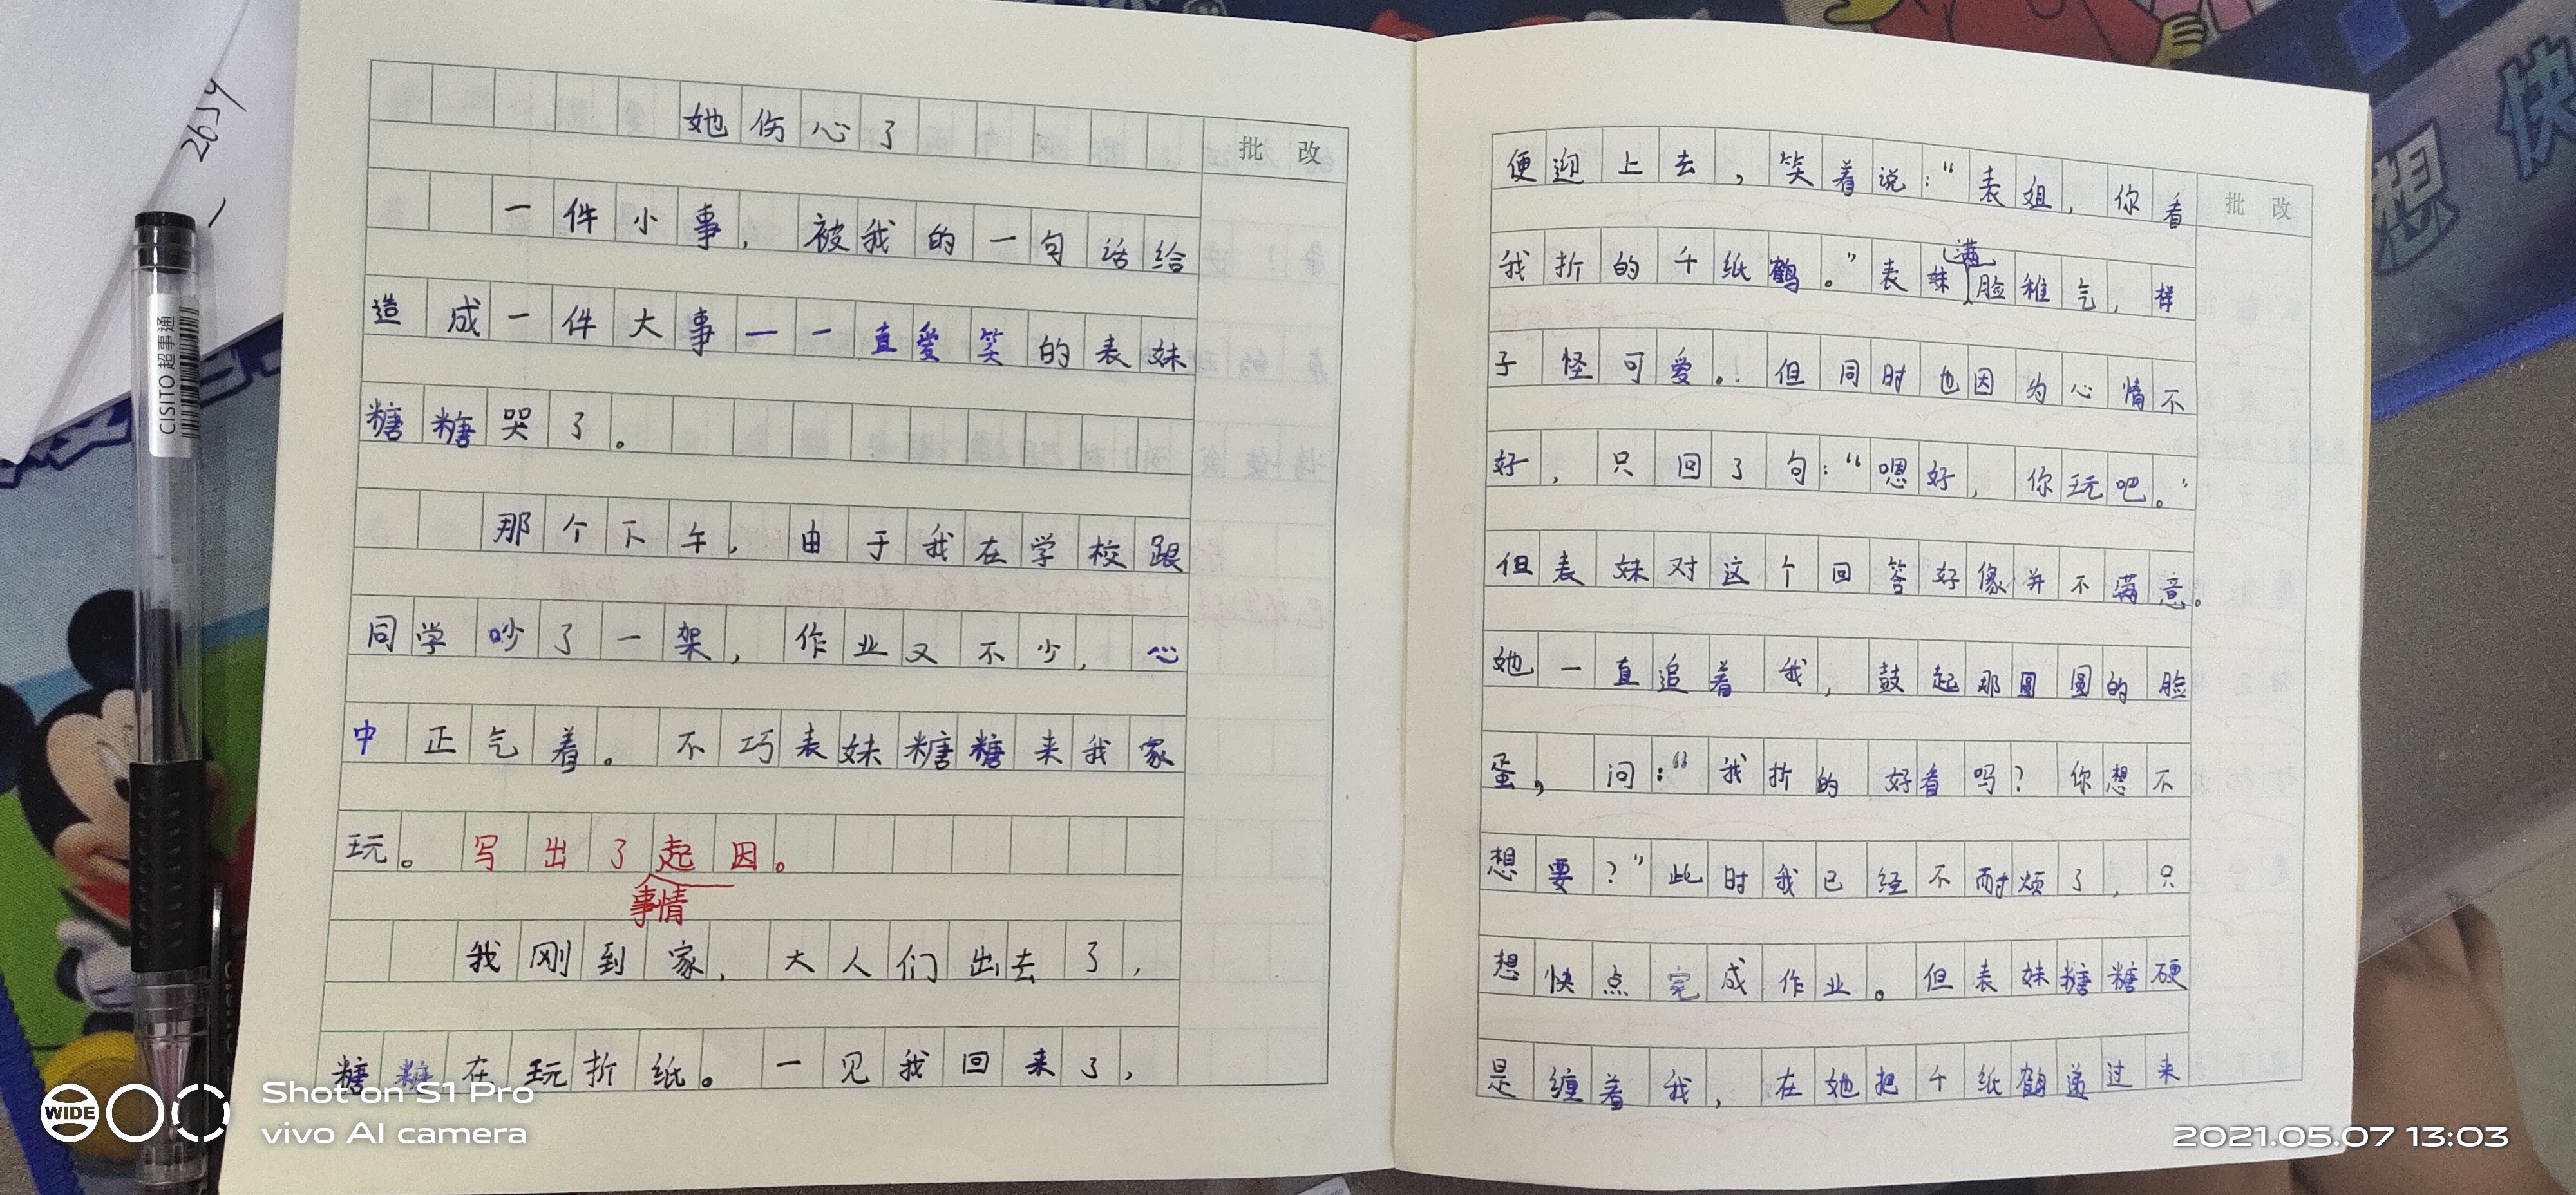 她伤心了
批改
一件小事，被我的一句话给
造成一件大事——一直爱笑的表妹
糖糖哭了。
那个下午，由于我在学校跟
同学吵了一架，作业又不少，心
中正气着。不巧表妹糖糖来我家
玩。写出了起因。
事情
我刚到家，大人们出去了，
糖糖在玩折纸。一见我回来了，
便迎上去，笑着说：“表姐，你看
批改
我折的千纸鹤。”表妹满脸稚气，样
子怪可爱。！但同时也因为心情不
好，只回了句：“嗯好，你玩吧。”
但表妹对这个回答好像并不满意。
她一直追着我，鼓起那圆圆的脸
蛋，问：“我折的好看吗？你想不
想要？”此时我已经不耐烦了，只
想快点完成作业。但表妹糖糖硬
是缠着我，在她把千纸鹤递过来
CISITO 超事通
想快
WIDE
Shot on S1 Pro
vivo AI camera
2021.05.07 13:03